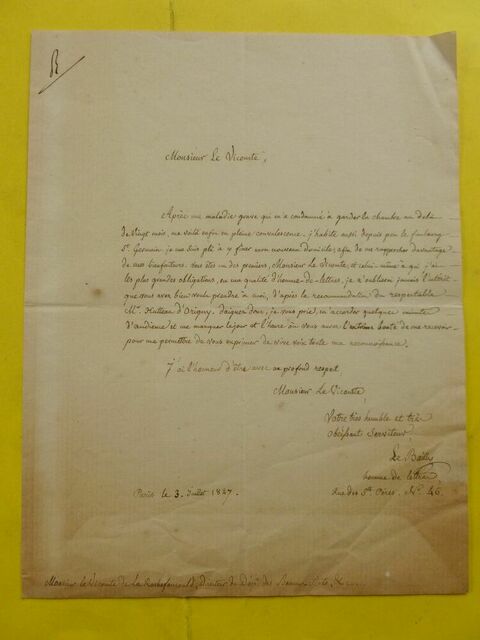 R
Monsieur Le Vicomte,
Après une maladie grave qui m'a condamné à garder la chambre au delà
de vingt mois, me voilà enfin en pleine convalescence. j'habite aussi depuis peu le faubourg
St. Germain, je me suis plû à y fixer mon nouveau domicile, afin de me rapprocher davantage
de mes bienfaiteurs. vous êtes un des premiers, Monsieur Le Vicomte, et celui-même à qui j'ai
les plus grandes obligations, en ma qualité d'homme-de-lettres, je n'oublierai jamais l'intérêt
que vous avez bien voulu prendre à moi, d'après la recommandation du respectable
Mr. Hutteau d'Origny. daignez donc, je vous prie, m'accorder quelques minutes
d'audience et me marquer le jour et l'heure où vous aurez l'extrême bonté de me recevoir
pour me permettre de vous exprimer de vive voix toute ma reconnaissance.
J'ai l'honneur d'être avec un profond respect
Monsieur Le Vicomte,
Votre très humble et très
obéissant Serviteur,
Le Bailly
homme de lettres
Paris le 3. Juillet 1827.
Rue des Sts. Pères. No. 46.
Monsieur le Vicomte de La Rochefoucauld, Directeur du Dépt. des Beaux-Arts, &